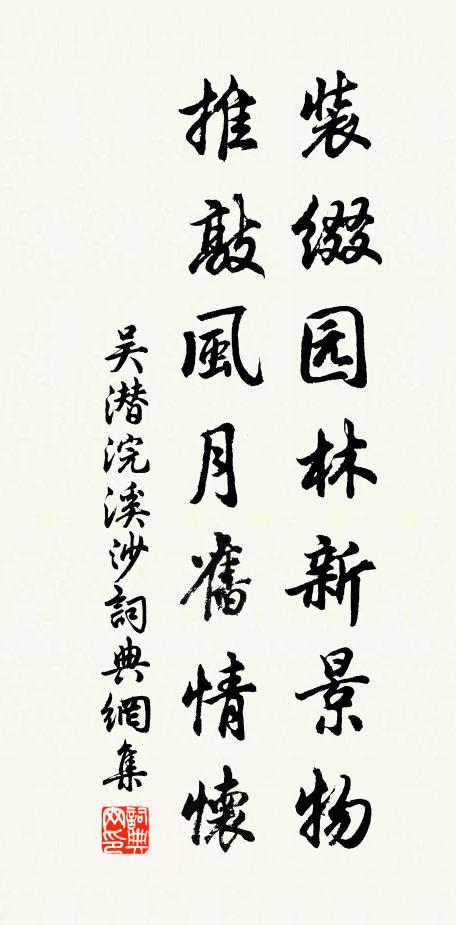 装缀园林新景物
推敲風月舊情懷
吴潜浣溪沙詞典網集
詞典網印